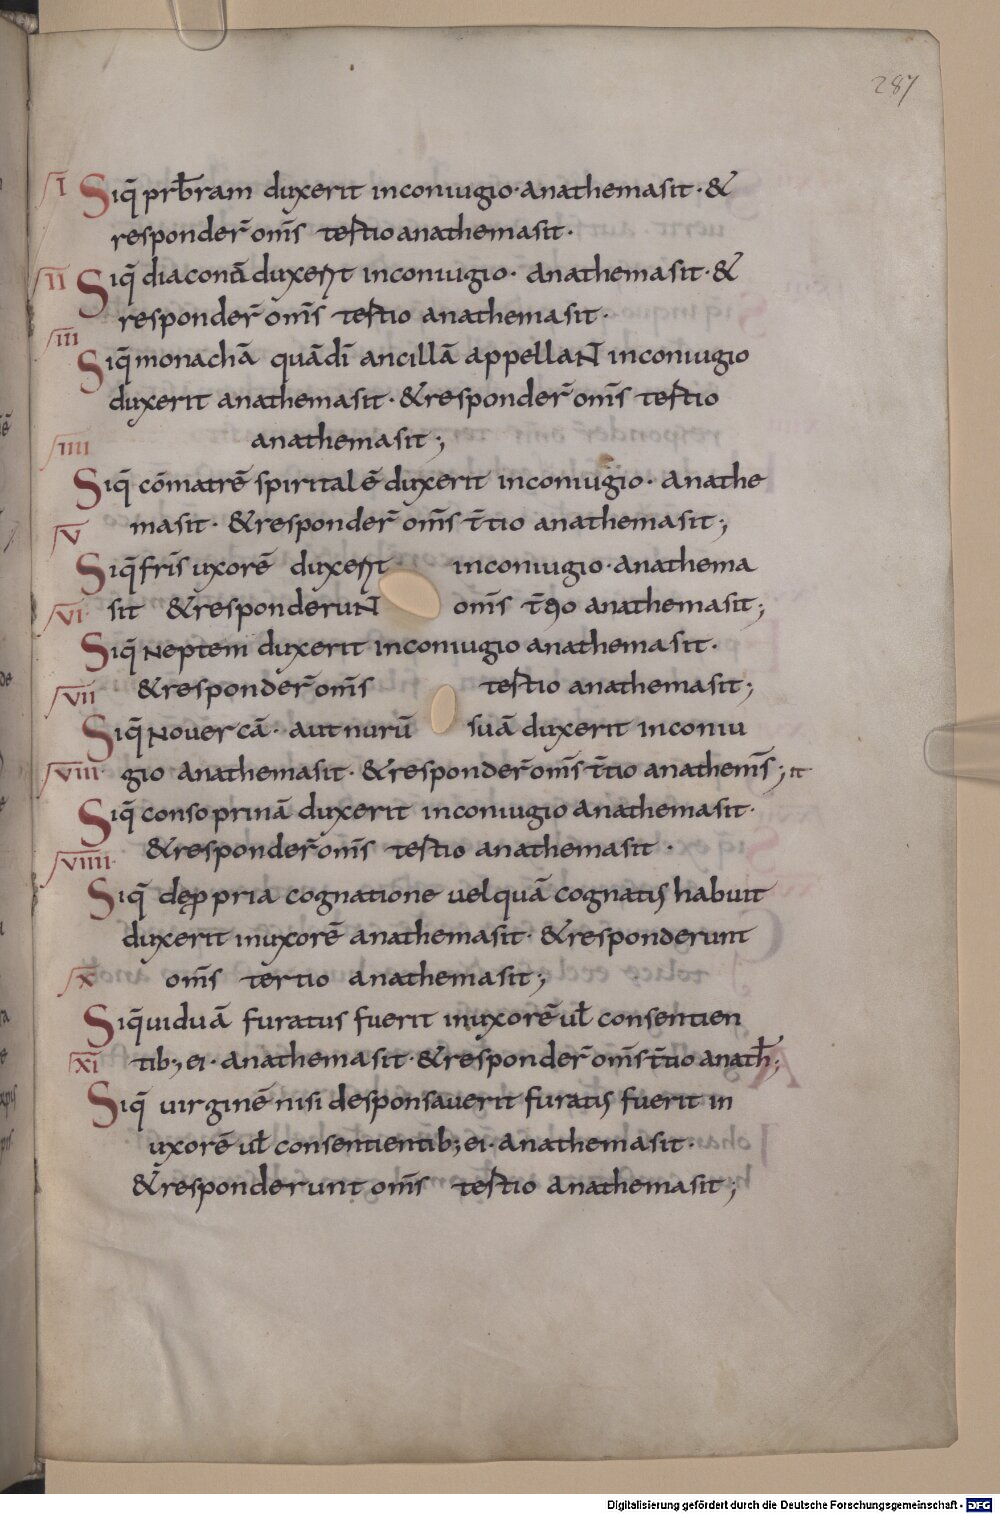 287
I Siq̄ prb̄ram duxerit inconiugio· anathemasit· &
responder̄ oms̄ tertio anathemasit·
II Siq̄ diaconā duxerit inconiugio· anathemasit· &
responder̄ oms̄ tertio anathemasit·
III Siq̄ monachā quā dī ancillā appellaNT inconiugio
duxerit anathemasit· &responder̄ oms̄ tertio
anathemasit;
IIII Siq̄ cōmatrē spiritalē duxerit inconiugio· anathe
masit· &responder̄ oms̄ t̄tio anathemasit;
V Siq̄ fr̄is uxorē duxerit inconiugio· anathema
VI sit &responderuNT oms̄ t̄cio anathemasit;
Siq̄ Neptem duxerit inconiugio anathemasit·
VII &responder̄ oms̄ tertio anathemasit;
Siq̄ Nouercā· aut nurū suā duxerit inconiu
VIII gio anathemasit· &responder̄ oms̄ t̄tio anathems̄; it
Siq̄ consoprinā duxerit inconiugio anathemasit·
VIIII &responder̄ oms̄ tertio anathemasit·
Siq̄ dę ꝓpria cognatione uel quā cognatus habuit
duxerit inuxorē anathemasit· &responderunt
X oms̄ tertio anathemasit;
Siq̄ uiduā furatus fuerit inuxorē ul̄ consentien
XI tib; ei· anathemasit· &responder̄ oms̄ t̄tio anath̄·
Siq̄ uirginē nisi desponsauerit furatus fuerit in
uxorē ul̄ consentientib; ei· anathemasit·
&responderunt oms̄ tertio anathemasit;
Digitalisierung gefördert durch die Deutsche Forschungsgemeinschaft - DFG